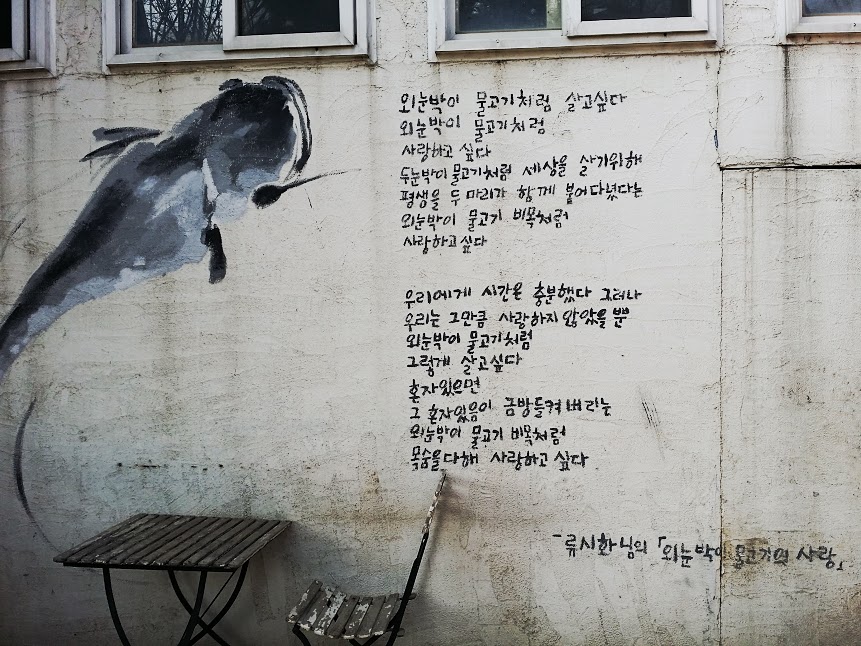 외눈박이 물고기처럼 살고싶다
외눈박이 물고기처럼
사랑하고 싶다
두눈박이 물고기처럼 세상을 살기위해
평생을 두마리가 함께 붙어다녔다는
외눈박이 물고기 비목처럼
사랑하고싶다
우리에게 시간은 충분했다 그러나
우리는 그만큼 사랑하지 않았을 뿐
외눈박이 물고기처럼
그렇게 살고싶다
혼자있으면
그 혼자있음이 금방들켜 버리는
외눈박이 물고기 비목처럼
목숨을다해 사랑하고 싶다
-류시화님의 「외눈박이 물고기의 사랑」